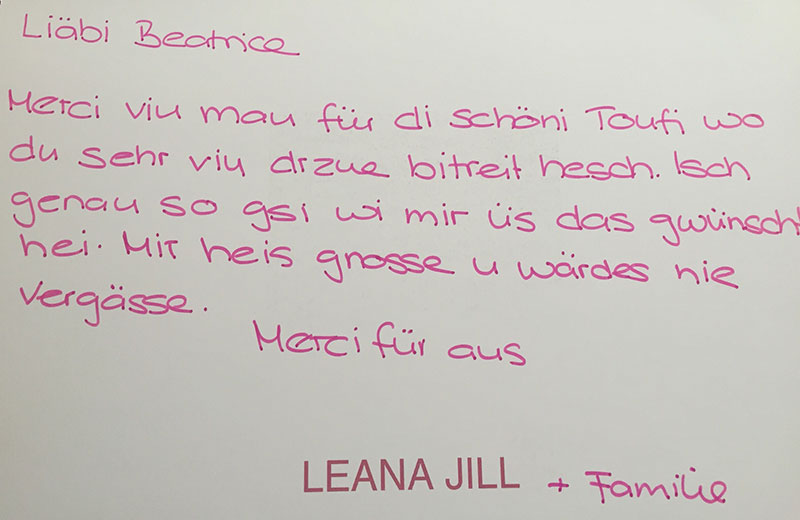 Liäbi Beatrice
Merci viu mau für di schöni Toufi wo
du sehr viu drzue bitreit hesch. Isch
genau so gsi wi mir üs das gwünscht
hei. Mir heis gnosse u wärdes nie
vergässe.
Merci für aus
LEANA JILL + Familie